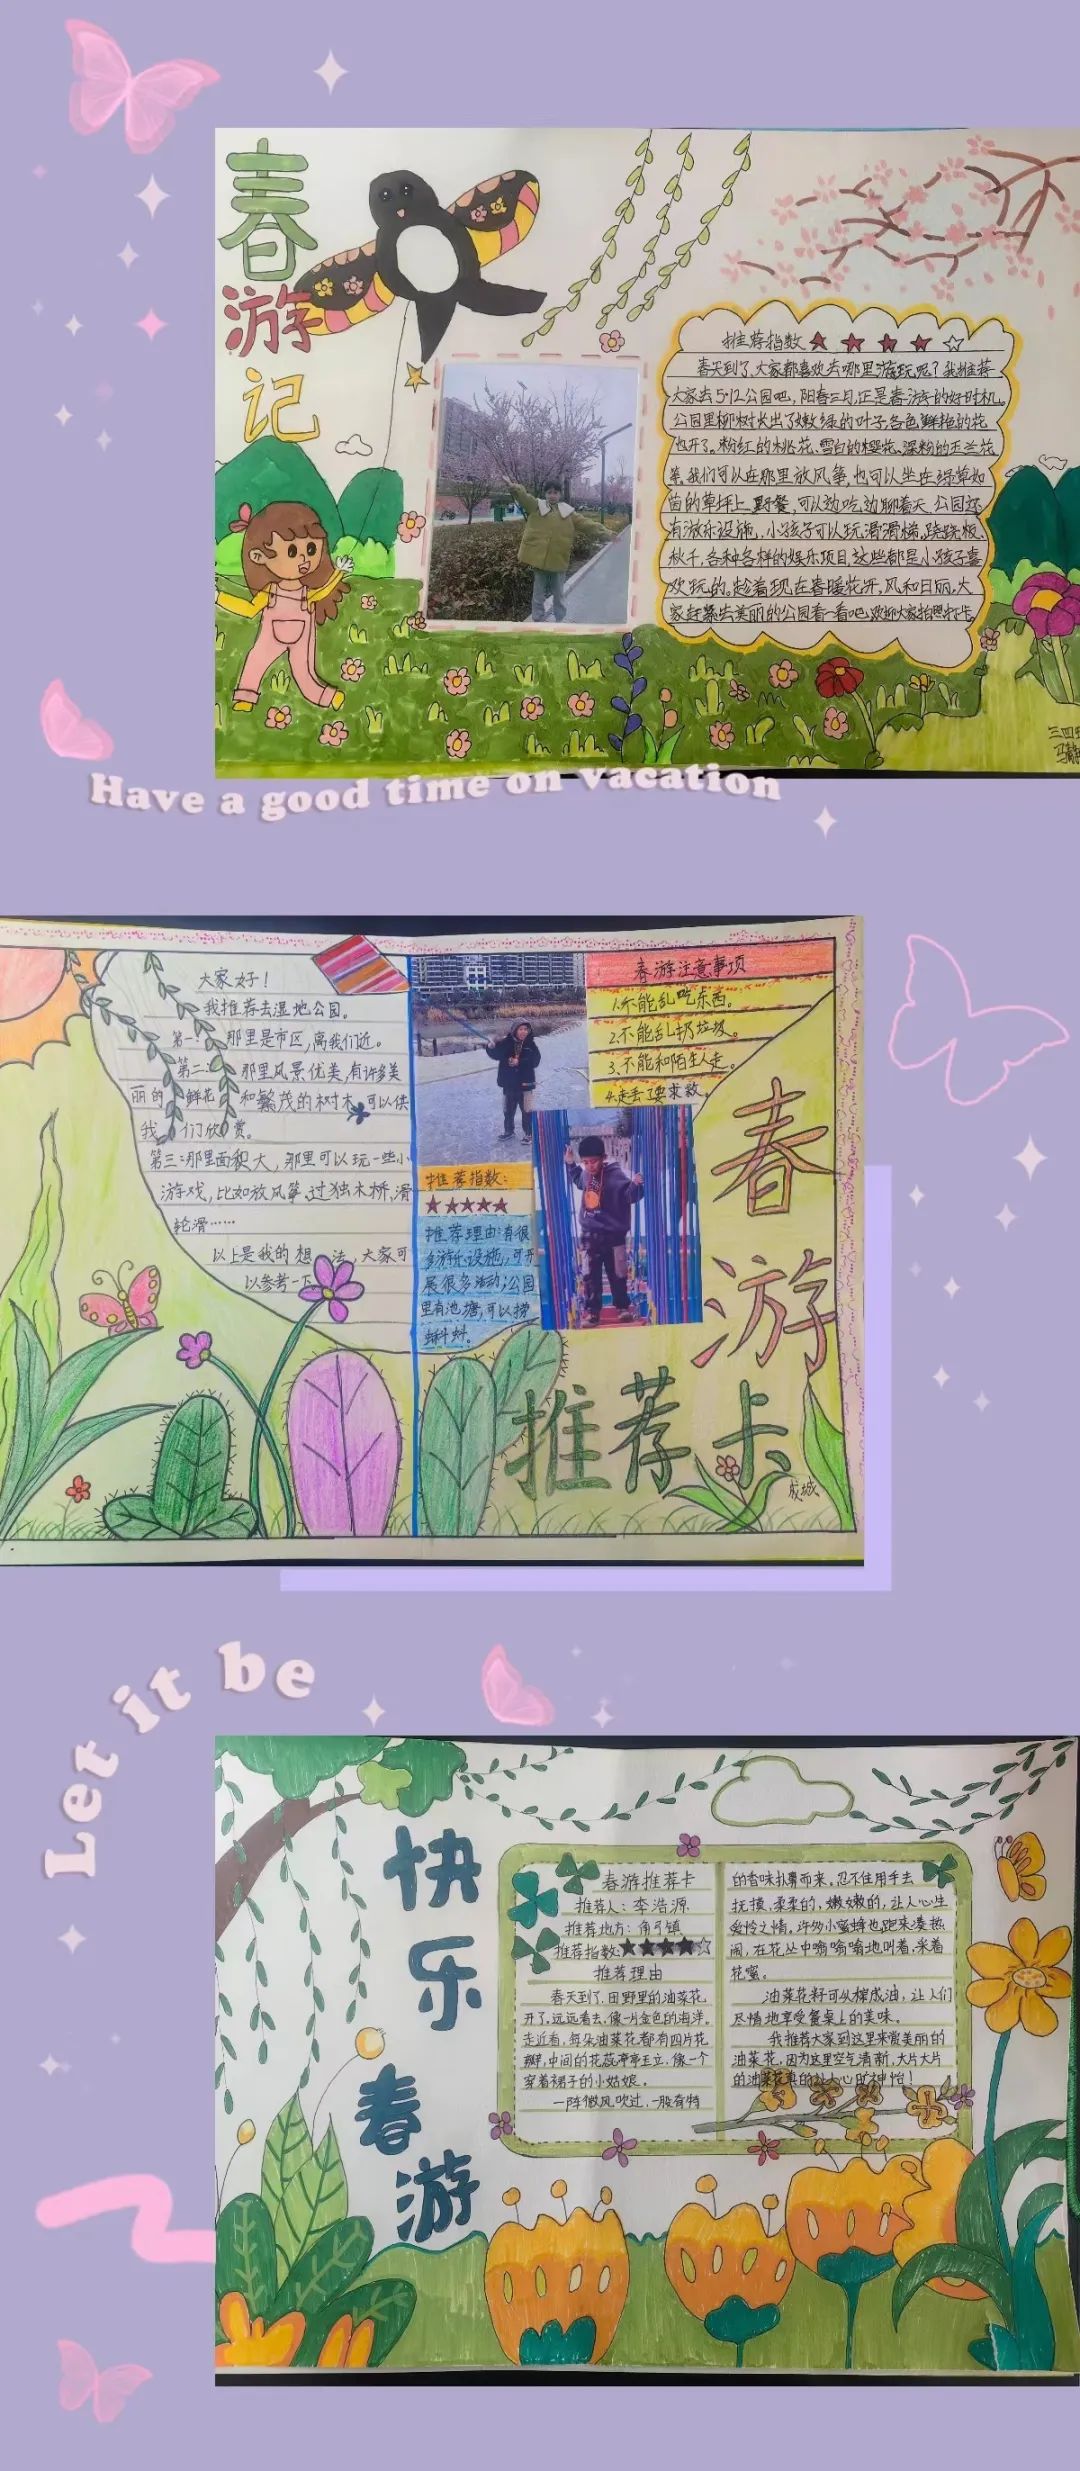 春
游
记
推荐指数
春天到了,大家都喜欢去哪里游玩呢?我推荐
大家去5·12公园吧,阳春三月,正是春游的好时机。
公园里柳树长出了嫩绿的叶子,各色鲜艳的花
也开了。粉红的桃花、雪白的樱花、深粉的玉兰花
等,我们可以在那里放风筝,也可以坐在绿草如
茵的草坪上野餐,可以边吃边聊着天。公园还
有游乐设施,小孩子可以玩滑滑梯、跷跷板、
秋千,各种各样的娱乐项目,这些都是小孩子喜
欢玩的。趁着现在春暖花开,风和日丽,大
家赶紧去美丽的公园看一看吧,欢迎大家拍照打卡。
三四班
Have a good time on vacation
大家好!
我推荐去湿地公园。
第一:那里是市区,离我们近。
第二:那里风景优美,有许多美
丽的鲜花和繁茂的树木,可以供
我们欣赏。
第三:那里面积大,那里可以玩一些小
游戏,比如放风筝、过独木桥,滑
轮滑……
以上是我的想法,大家可
以参考一下
推荐指数:
推荐理由:有很
多游乐设施,可开
展很多活动;公园
里有池塘,可以捞
蝌蚪。
春游注意事项
1.不能乱吃东西。
2.不能乱扔垃圾。
3.不能和陌生人走。
4.走丢了要求救。
春
游
推荐卡
成城
Let it be
快
乐
春
游
春游推荐卡
推荐人:李浩源
推荐地方:角弓镇
推荐指数:
推荐理由
春天到了,田野里的油菜花
开了。远远看去,像一片金色的海洋。
走近看,每朵油菜花都有四片花
瓣,中间的花蕊亭亭玉立,像一个
穿着裙子的小姑娘。
一阵微风吹过,一股奇特
的香味扑鼻而来。忍不住用手去
抚摸,柔柔的,嫩嫩的,让人心生
爱怜之情。许多小蜜蜂也跑来凑热
闹,在花丛中嗡嗡嗡地叫着,采着
花蜜。
油菜花籽可以榨成油,让人们
尽情地享受餐桌上的美味。
我推荐大家到这里来赏美丽的
油菜花,因为这里空气清新,大片大片
的油菜花真的让人心旷神怡!